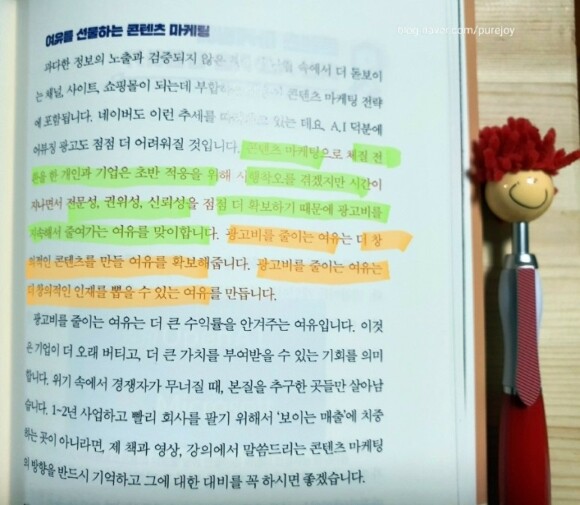 blog.naver.com/purejoy
여유를 선물하는 콘텐츠 마케팅
과다한 정보의 노출과 검증되지 않은 속에서 더 돋보이
는 채널, 사이트, 쇼핑몰이 되는데 부합하는 콘텐츠 마케팅 전략
에 포함됩니다. 네이버도 이런 추세를 있는 데요, A.I 덕분에
어뷰징 광고도 점점 더 어려워질 것입니다. 콘텐츠 마케팅으로 체질 전
환을 한 개인과 기업은 초반 적응을 위해 시행착오를 겪겠지만 시간이
지나면서 전문성, 권위성, 신뢰성을 점점 더 확보하기 때문에 광고비를
지속해서 줄여가는 여유를 맞이합니다. 광고비를 줄이는 여유는 더 창
의적인 콘텐츠를 만들 여유를 확보해줍니다. 광고비를 줄이는 여유는
더 창의적인 인재를 뽑을 수 있는 여유를 만듭니다.
광고비를 줄이는 여유는 더 큰 수익률을 안겨주는 여유입니다. 이것
은 기업이 더 오래 버티고, 더 큰 가치를 부여받을 수 있는 기회를 의미
합니다. 위기 속에서 경쟁자가 무너질 때, 본질을 추구한 곳들만 살아남
습니다. 1~2년 사업하고 빨리 회사를 팔기 위해서 ‘보이는 매출’에 치중
하는 곳이 아니라면, 제 책과 영상, 강의에서 말씀드리는 콘텐츠 마케팅
의 방향을 반드시 기억하고 그에 대한 대비를 꼭 하시면 좋겠습니다.